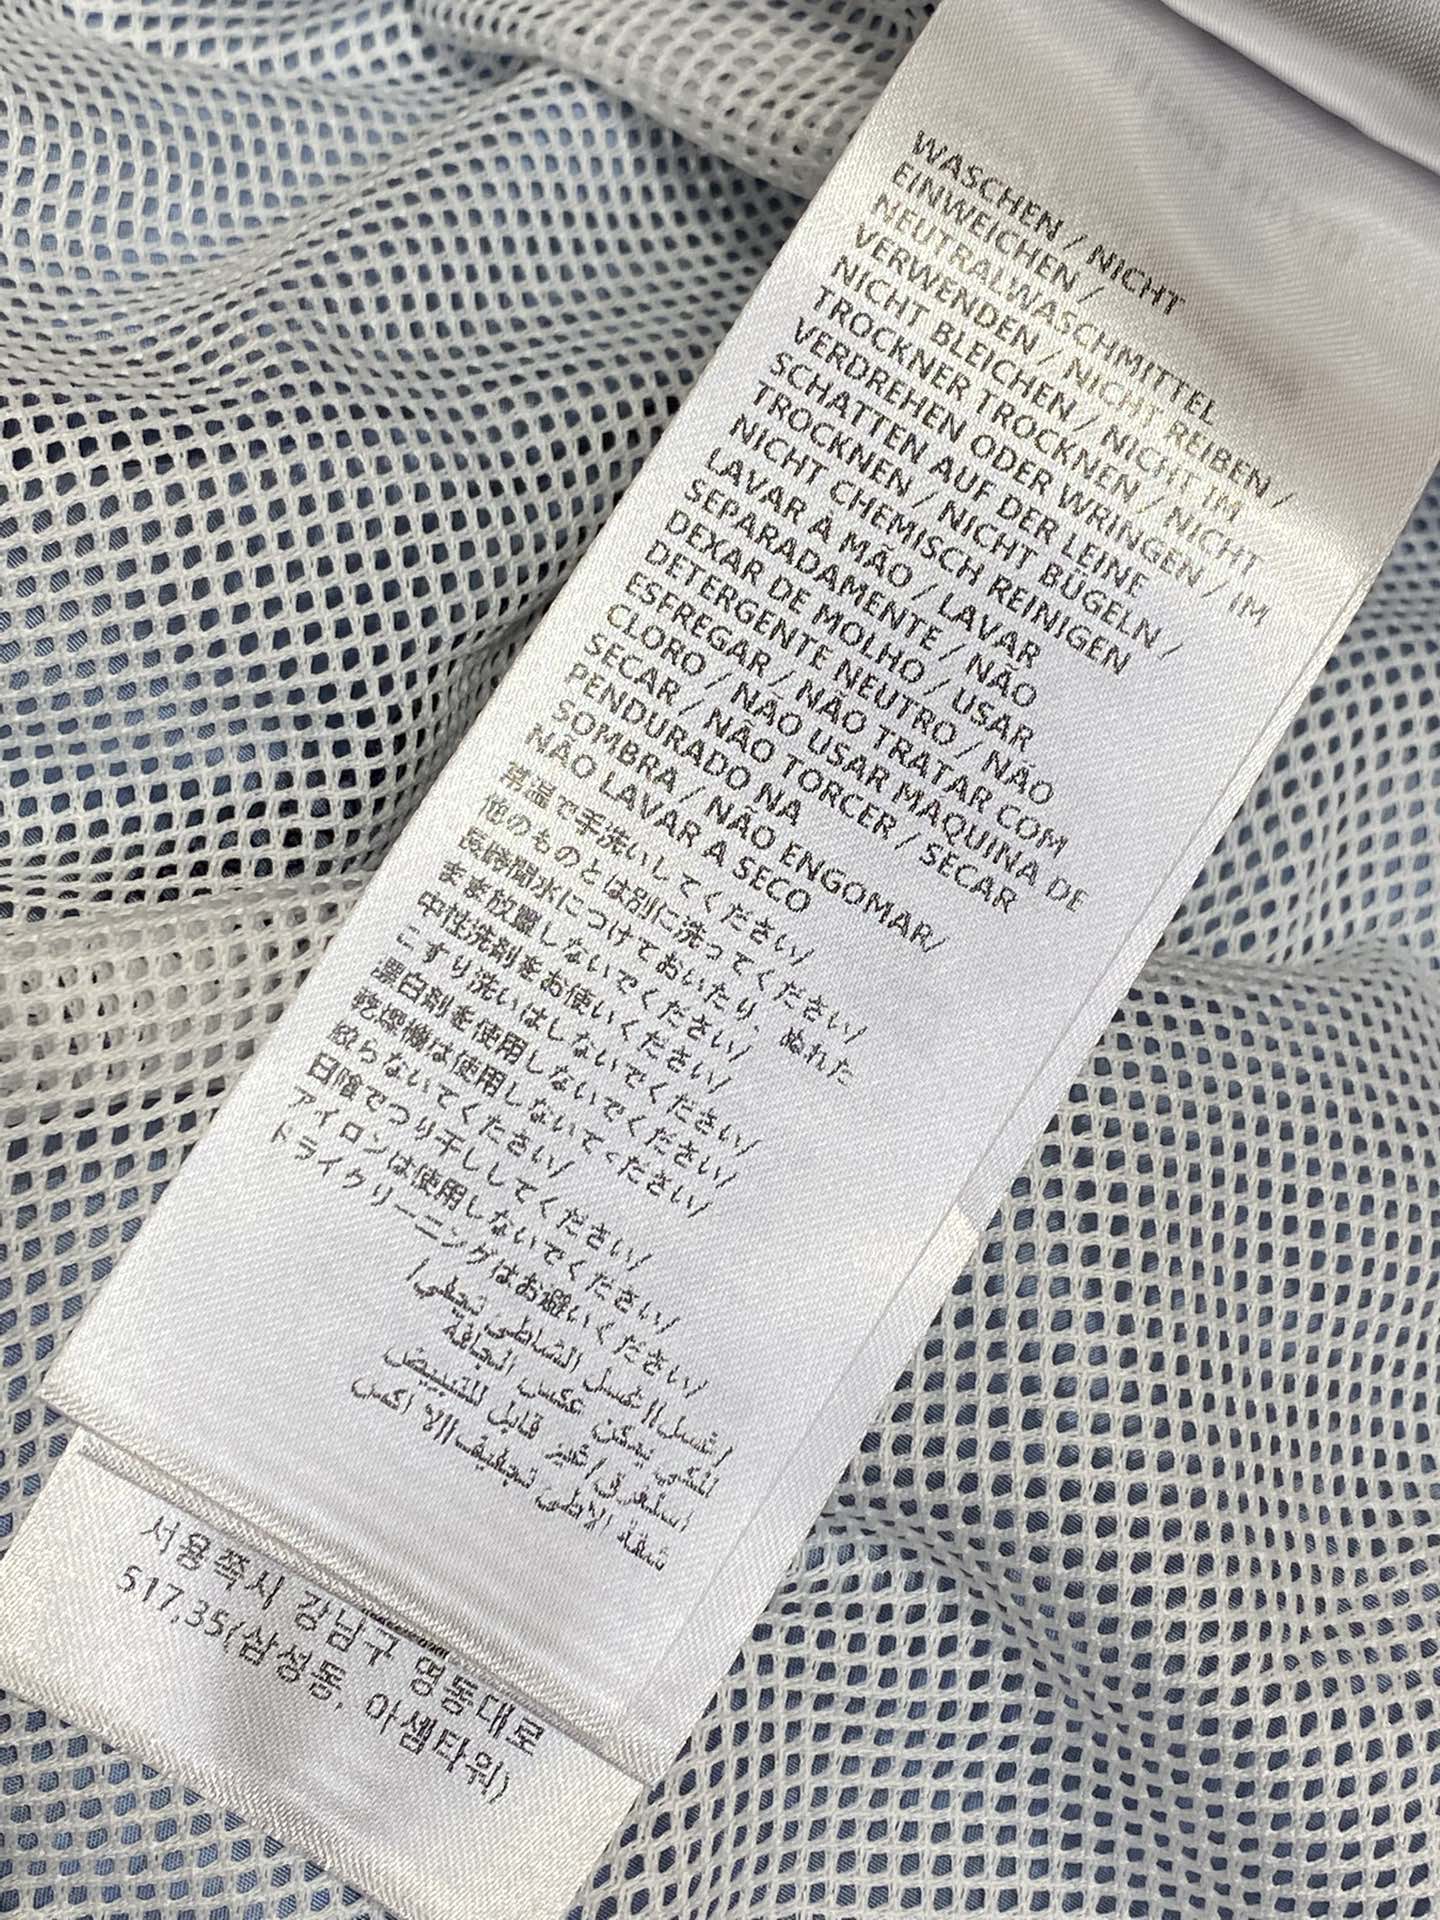 WASCHEN / NICHT
EINWEICHEN /
NEUTRALWASCHMITTEL
VERWENDEN / NICHT REIBEN /
NICHT BLEICHEN / NICHT IM
TROCKNER TROCKNEN / NICHT
VERDREHEN ODER WRINGEN / IM
SCHATTEN AUF DER LEINE
TROCKNEN / NICHT BÜGELN /
NICHT CHEMISCH REINIGEN
LAVAR À MÃO / LAVAR
SEPARADAMENTE / NÃO
DEXAR DE MOLHO / USAR
DETERGENTE NEUTRO / NÃO
ESFREGAR / NÃO TRATAR COM
CLORO / NÃO USAR MAQUINA DE
SECAR / NÃO TORCER / SECAR
PENDURADO NA
SOMBRA / NÃO ENGOMAR/
NÃO LAVAR A SECO
常温で手洗いしてください/
他のものとは別に洗ってください/
長時間水につけておいたり、ぬれた
まま放置しないでください/
中性洗剤をお使いください/
こすり洗いはしないでください/
漂白剤を使用しないでください/
乾燥機は使用しないでください/
絞らないでください/
日陰でつり干ししてください/
アイロンは使用しないでください/
ドライクリーニングはお避いください/
اغسل||غسل الشاطئ تجفي/
للكي يمكن عكس الجافة
استغرق/غير قابل للتبييض
شقة لاطئ تجفيف||لا اكس
서용쪽시 강남구 영동대로
517,35(삼성동, 아셈타워)